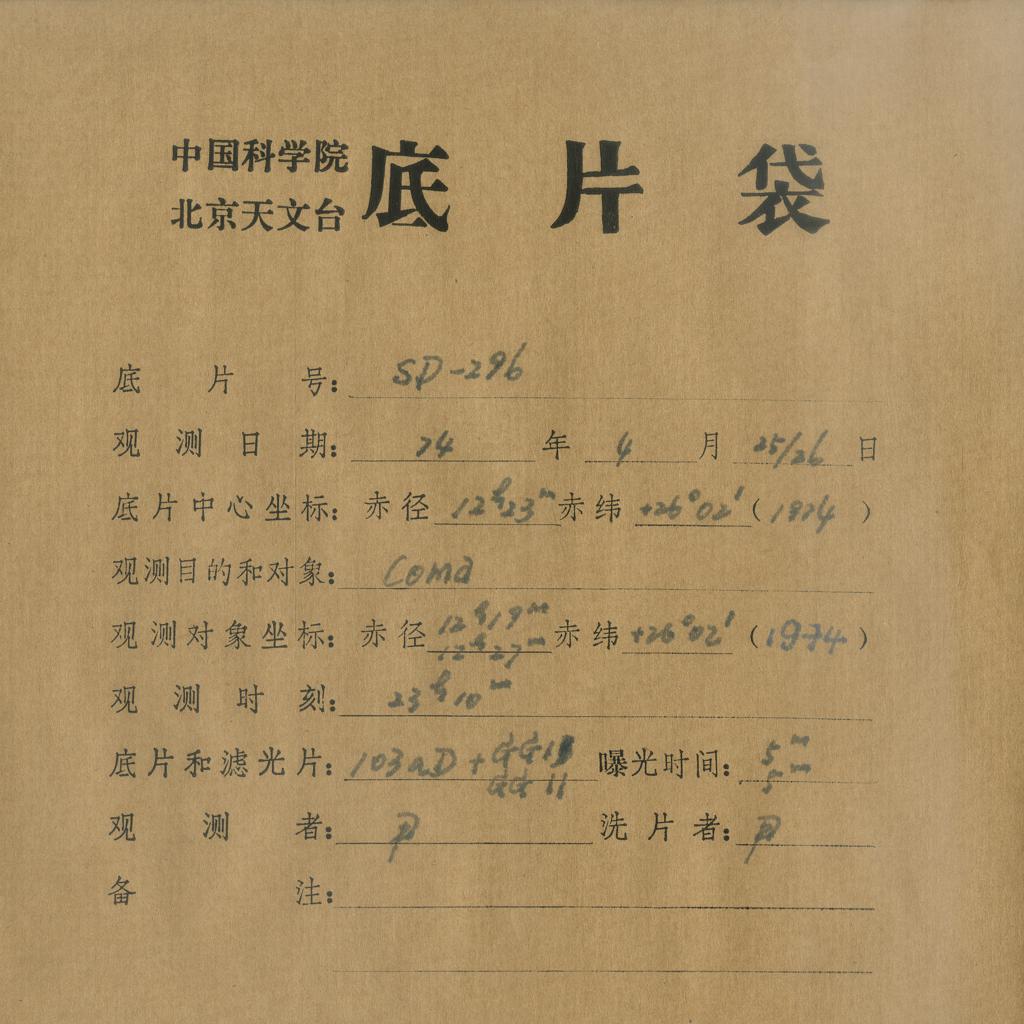 中国科学院
北京天文台
底片袋
底片号: SD-296
观测日期: 74 年 4 月 25/26 日
底片中心坐标: 赤径 12ʰ23ᵐ 赤纬 +26°02′ (1974)
观测目的和对象: Coma
观测对象坐标: 赤径 12ʰ19ᵐ 赤纬 +26°02′ (1974)
12ʰ27ᵐ
观测时刻: 23ʰ10ᵐ
底片和滤光片: 103aD + GG11 曝光时间: 5ᵐ
GG 11 5ᵐ
观测者: 尹 洗片者: 尹
备注: